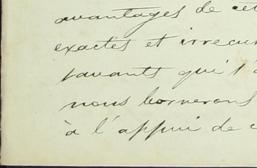 avantages de cet
exactes et irrecus
savants qui l'a
nous bornerons
à l'appui de c